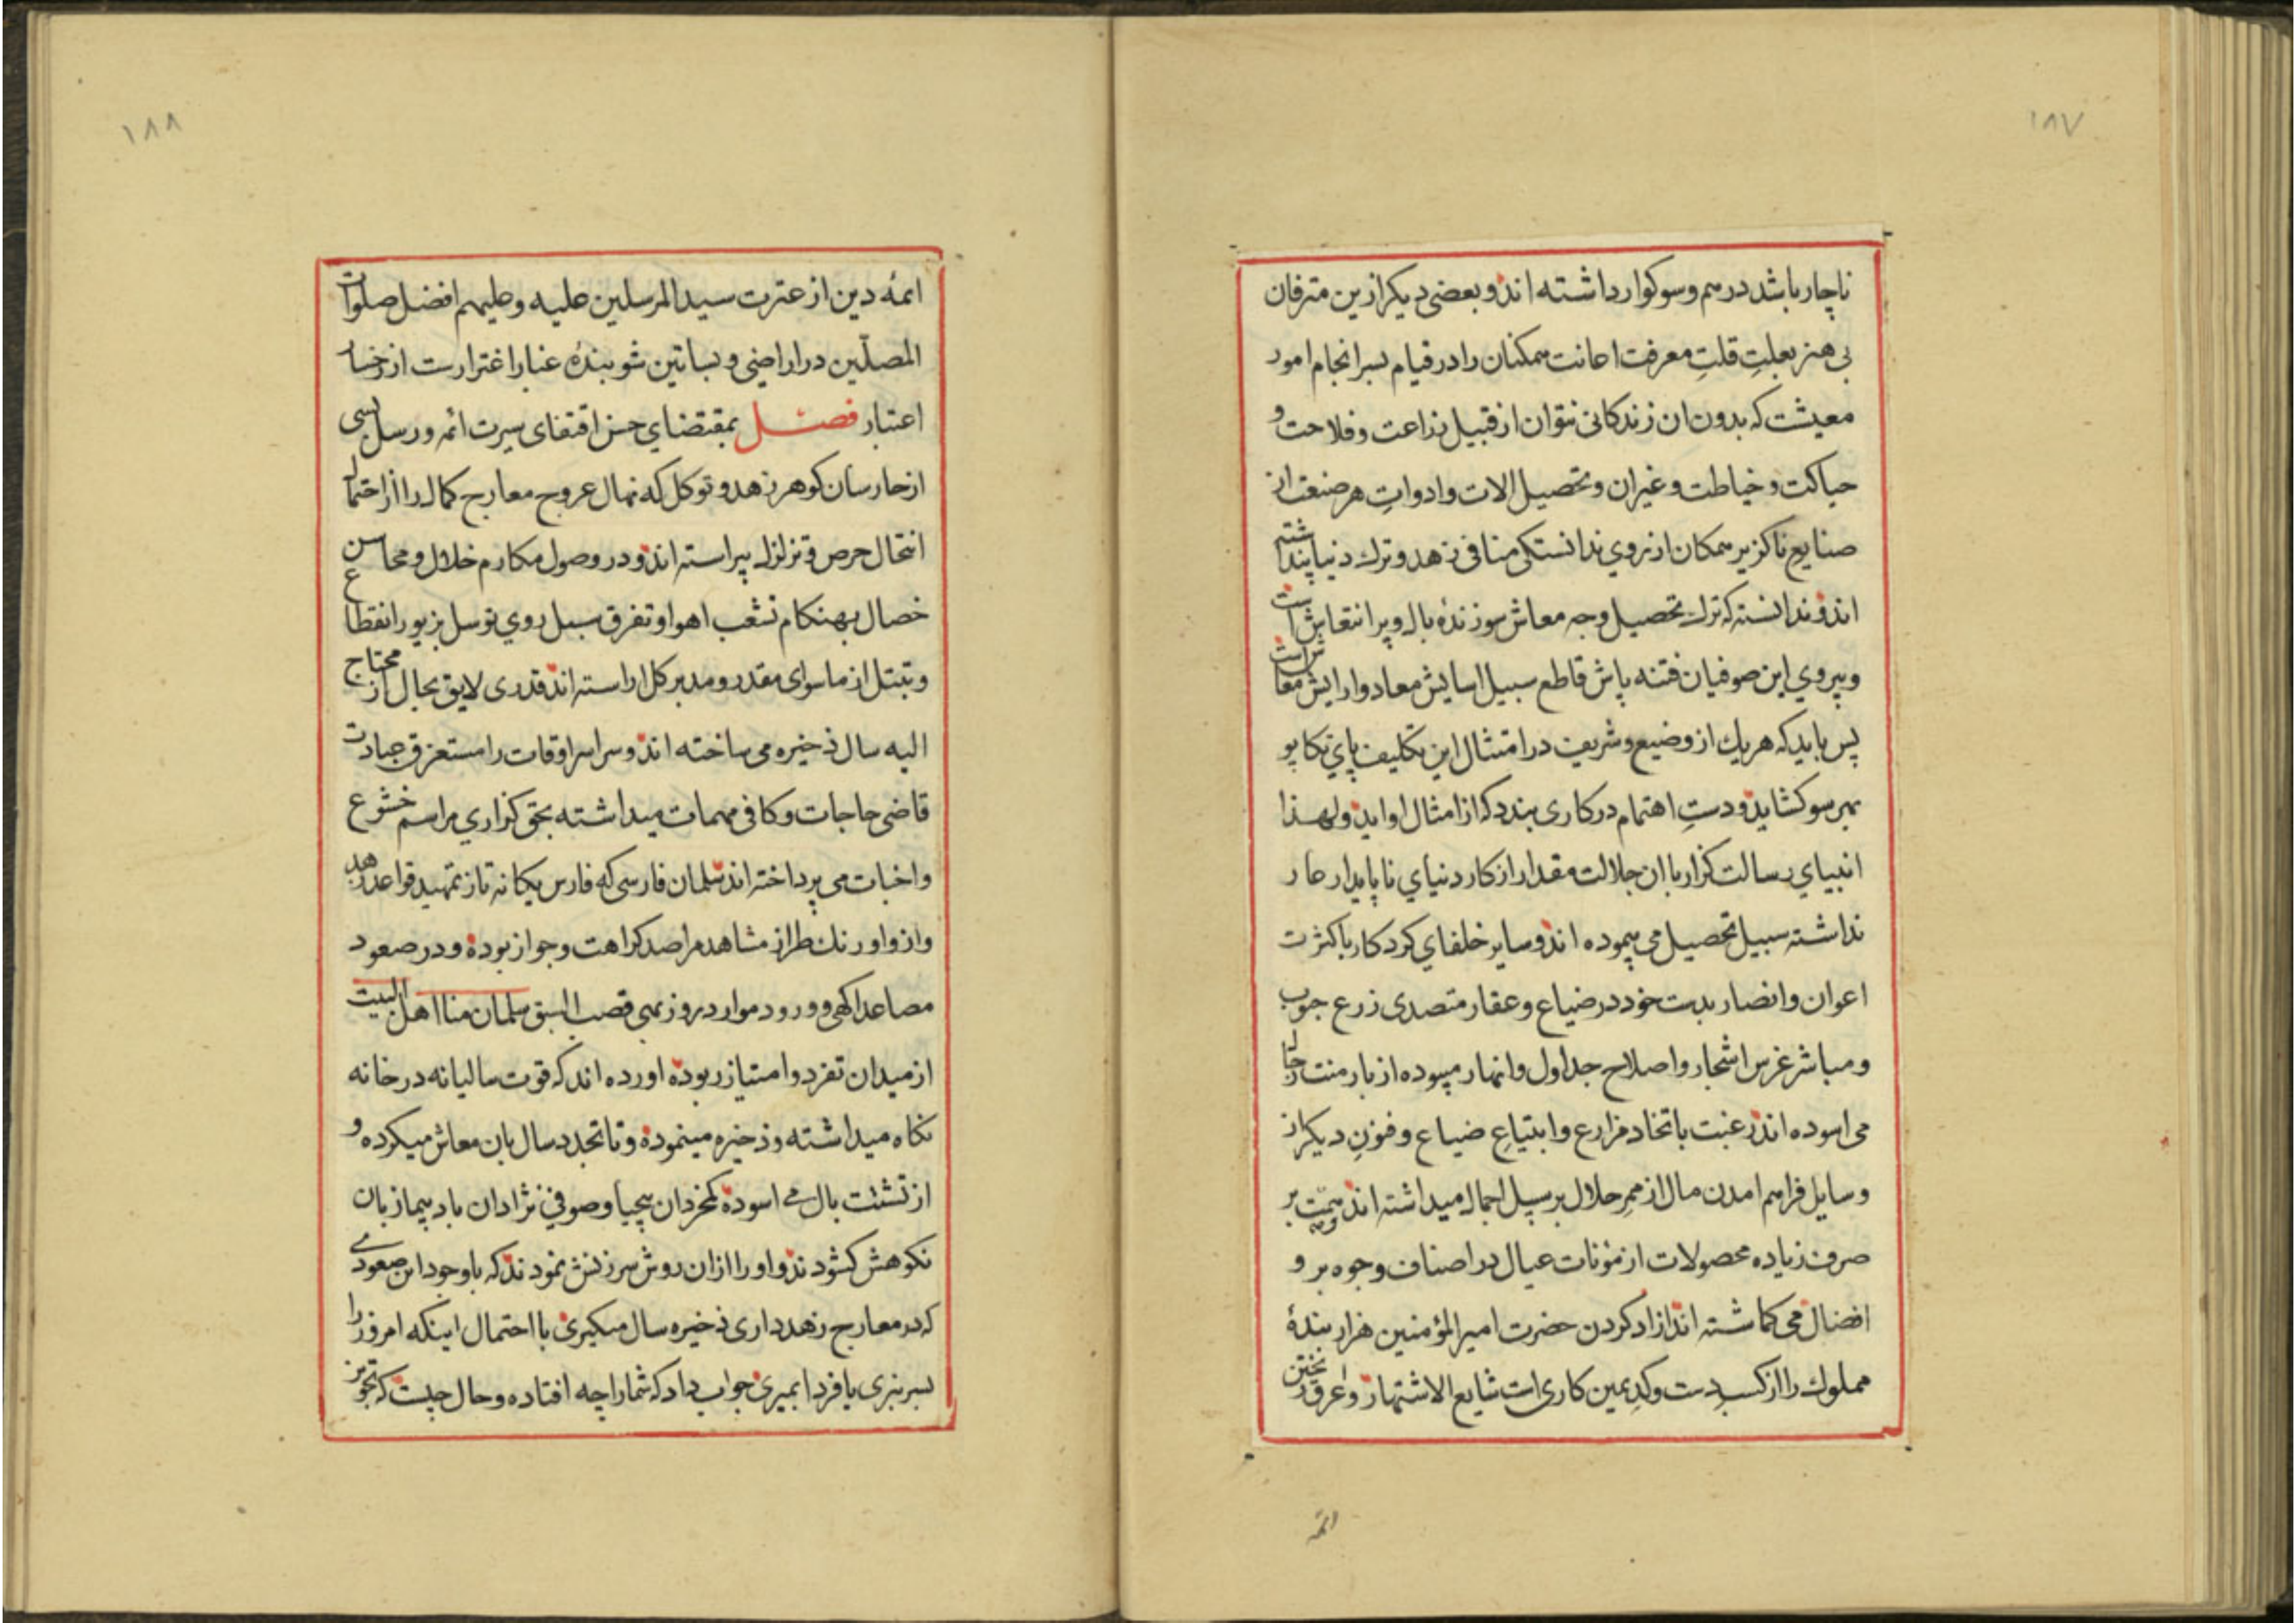 ۱۸۷
ناچار باشد درهم و سوکوار داشته اند و بعضی دیکر ازین مترفان
بی هنر بعلتِ قلتِ معرفت اعانت ممکنان را در قیام بسرانجام امور
معیشت که بدون ان زندکانی نتوان از قبیل زراعت و فلاحت و
حیاکت و خیاطت و غیران و تحصیل الات و ادواتِ هر صنعت از
صنایع ناکزیر همکان از روي ندانستکی منافی زهد و ترك دنیا پنداشته
اند و ندانسته که ترك تحصیل وجه معاش سوزندهٔ بال و پر انتعاش است
و پیروي این صوفیان فتنه پاش قاطع سبیل اسایش معاد و ارایش معاش است
پس باید که هر یك از وضیع و شریف در امتثال این تکلیف پاي تکاپو
بهر سو کشاید و دستِ اهتمام در کاری بندد که از امثال او اید و لهذا
انبیاي رسالت کزار با ان جلالت مقدار از کار دنیاي ناپایدار عار
نداشته سبیل تحصیل می پیموده اند و سایر خلفاي کردکار با کثرت
اعوان و انصار بدست خود در ضیاع و عقار متصدی زرع حبوب
و مباشر غرس اشجار و اصلاح جداول و انهار میبوده از بار منت
می اسوده اند رغبت باتخاد مزارع و ابتیاعِ ضیاع و فنونِ دیکر از
وسایل فراهم امدن مال از ممرِ حلال بر سبیل اجمال میداشته اند و همّت بر
صرف زیاده محصولات از مؤنات عیال در اصناف وجوه بر و
افضال می کماشته اند ازاد کردن حضرت امیرالمؤمنین هزار بندهٔ
مملوك را از کسبِ دست و کدِ یمین کاری است شایع الاشتهار و عرق ریختن
ائمه
۱۸۸
ائمه دین از عترت سید المرسلین علیه و علیهم افضل صلوات
المصلّین در اراضی و بساتین شویندهٔ غبار اغترارست از رخسار
اعتبار فصل بمقتضاي حسن اقتفای سیرت ائمه و رسل بسی
از حارسان کوهر زهد و توکل که نهال عروج معارج کمال را از احتمال
انتحال حرص و تزلزل پیراسته اند و در وصول مکارم خلال و محاسن
خصال بهنکام تشعب اهوا و تفرق سبل روي توسل بزیور انقطاع
و تبتل از ماسوای مقدر و مدبر کل اراسته اند قدری لایق بحال از محتاج
الیه سال ذخیره می ساخته اند و سراسر اوقات را مستغرق عبادت
قاضی حاجات و کافی مهمات میداشته بحق کزاري مراسم خشوع
و اخبات می پرداخته اند سلمان فارسی که فارس یکانه تاز تمهید قواعد زهد
و از و اورنك طراز مشاهد مراصد کراهت و جواز بوده و در صعود
مصاعد اکهی و ورود موارد روزبهی قصب السبق سلمان منا اهل البیت
از میدان تفرد و امتیاز ربوده اورده اند که قوت سالیانه در خانه
نکاه میداشته و ذخیره مینموده و تا تجدد سال بان معاش میکرده و
از تشتت بال می اسوده کمخردان بیحیا و صوفی نژادان بادپیما زبان
نکوهش کشودند و او را ازان روش سرزنش نمودند که با وجود این صعودی
که در معارج زهد داری ذخیره سال میکیری با احتمال اینکه امروز را
بسر نبری یا فردا بمیری جواب داد که شما را چه افتاده و حال چیست که تجویز